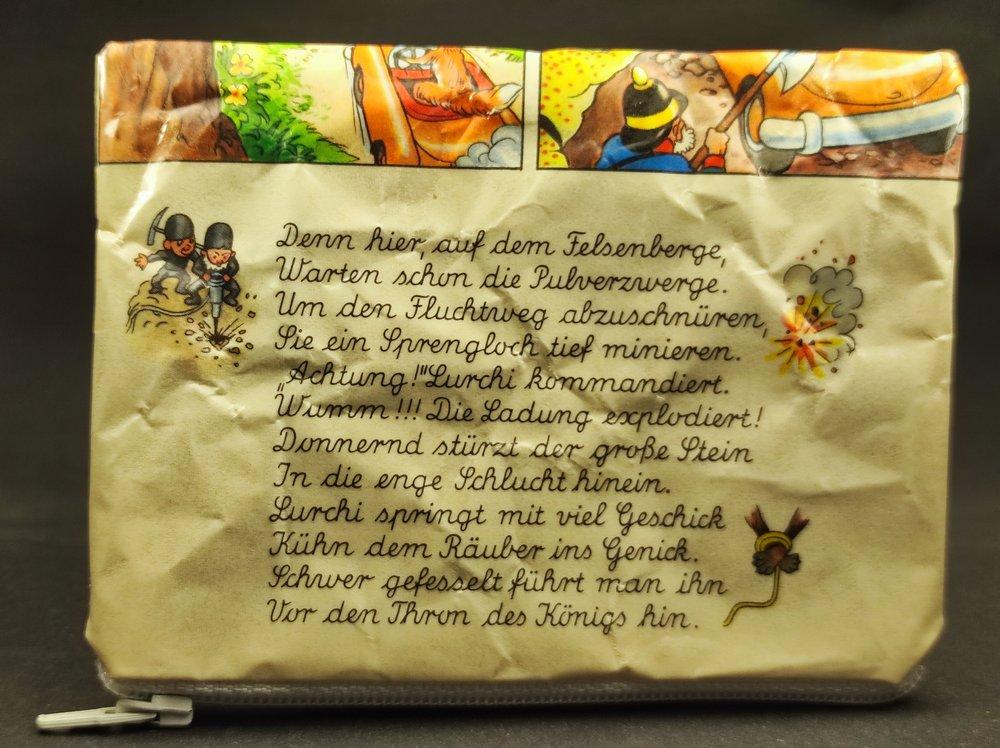 Denn hier, auf dem Felsenberge,
Warten schon die Pulverzwerge.
Um den Fluchtweg abzuschnüren,
Sie ein Sprengloch tief minieren.
„Achtung!" Lurchi kommandiert.
Wumm!!! Die Ladung explodiert!
Donnernd stürzt der große Stein
In die enge Schlucht hinein.
Lurchi springt mit viel Geschick
Kühn dem Räuber ins Genick.
Schwer gefesselt führt man ihn
Vor den Thron des Königs hin.